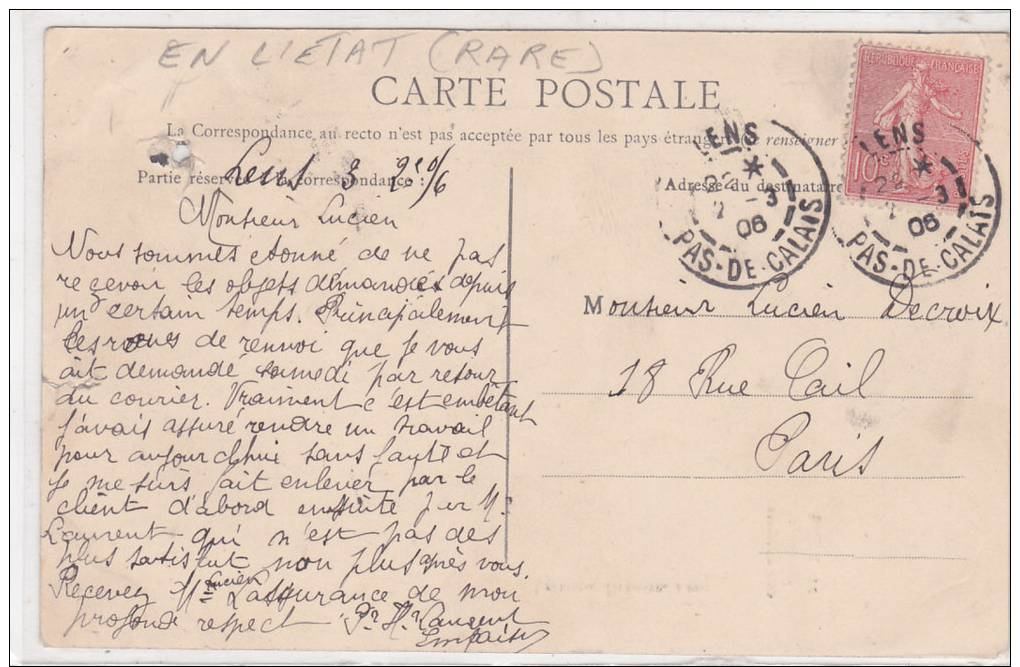 EN L'ETAT (RARE)
CARTE POSTALE
La Correspondance au recto n'est pas acceptée par tous les pays étrangers (se renseigner
Partie réservée à la correspondance :
Adresse du destinataire
Lens 3
Monsieur Lucien
Nous sommes étonné de ne pas
reçevoir les objets démandées depuis
un certain temps. Principalement
les de renvoi que je vous
ait demandé samedi par retour
du courier. Vraiment c'est embêtant
j'avais assuré rendre un travail
pour aujourd'hui sans faute et
je me suis fait enlever par le
client d'abord ensuite par Mr
Laurent qui n'est pas des
plus satisfait non plus après vous.
Recevez Mr Lucien L'assurance de mon
profond respect Pr Mr Laurent
REPUBLIQUE FRANÇAISE
10c
LENS
22
-3
06
PAS-DE-CALAIS
LENS
22
-3
06
PAS-DE-CALAIS
Monsieur Lucien Decroix
18 Rue Cail
Paris